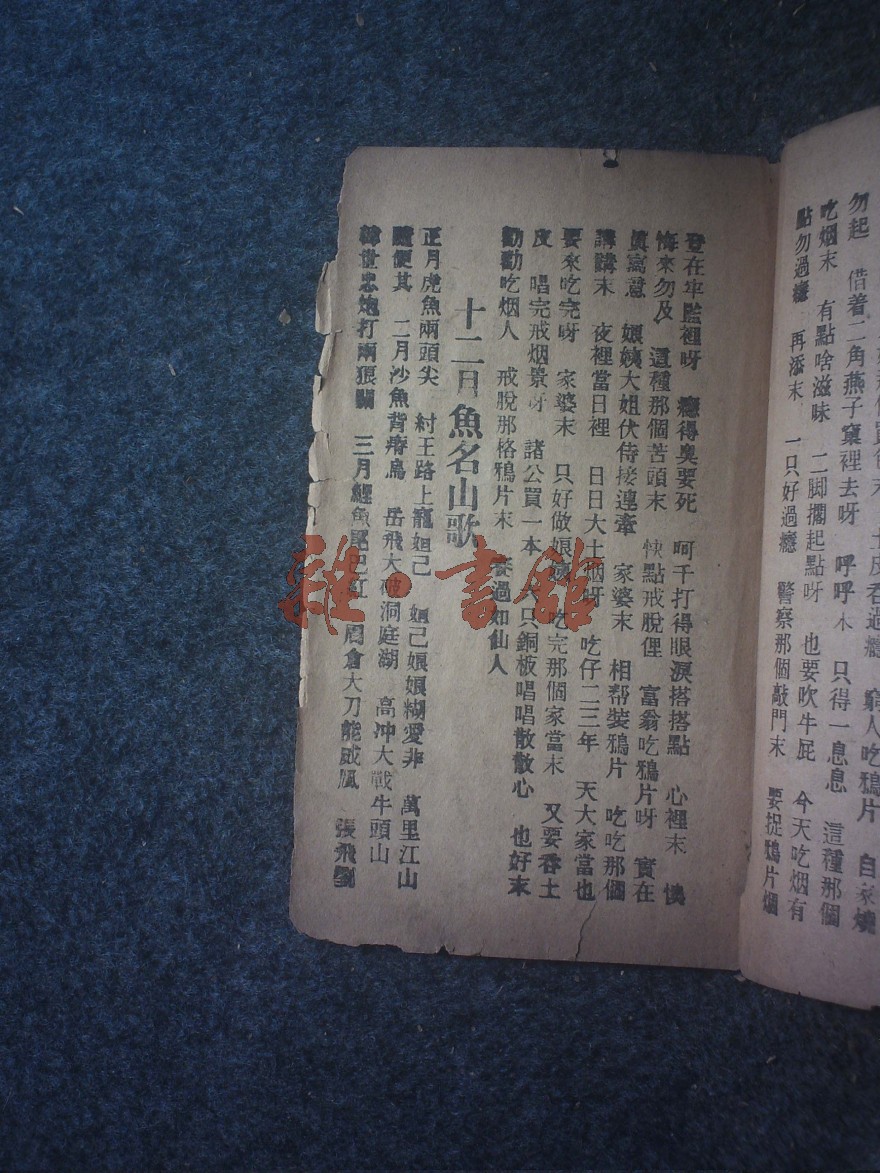 勿起　借着二角燕子窠裡去呀　呼呼末　只得一息息　這種那個
吃烟末　有點啥滋味　二脚擱起點呀　也要吹牛屁　今天吃烟有
點勿過癮　再添末　一只好過癮　警察那個敲門末　要捉鴉片烟
登在牢監裡呀　癮得臭要死　呵千打得眼淚搭搭點　心裡末　懊
悔來勿及　這種那個苦頭末　快點戒脫俚　富翁吃鴉片呀　實在
真寫意　娘姨大姐伏侍接連牽　家婆末　相帮裝鴉片　吃吃那個
講講末　夜裡當日裡　日日大土烟呀　吃仔二三年　天大家當也
要來吃完呀　家婆末　只好做娘姨　吃完那個家當末　又要吞土
皮　唱完戒烟景呀　諸公買一本　只銅板唱唱散散心　也好末
勸勸吃烟人　戒脫那格鴉片末　賽過如仙人
十二月魚名山歌
正月虎魚兩頭尖　紂王路上寵妲己　妲己娘娘糊愛非　萬里江山
隨便其　二月沙魚背脊烏　岳飛大破洞庭湖　高冲大戰牛頭山
韓世忠炮打兩狼關　三月鯉魚尾巴紅　周倉大刀能威風　張飛劉
雜·書館